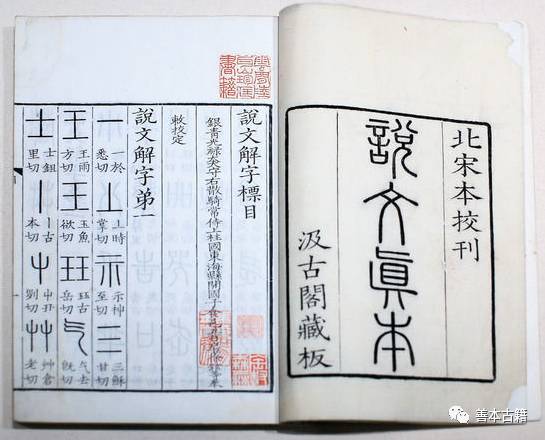 北宋本校刊
說文眞本
汲古閣藏板
說文解字標目
銀青光祿大夫守右散騎常侍上柱國東海縣開國子食邑五百戶臣徐鉉等奉
敕校定
說文解字第一
一 一於悉切 丄 丄時掌切 示 示神至切 三 三穌甘切
王 王雨方切 王 玉魚欲切 玨 玨古岳切 气 气去旣切
士 士鉏里切 丨 丨古本切 屮 屮丑切 艸 艸倉老切
書籍
善本古籍